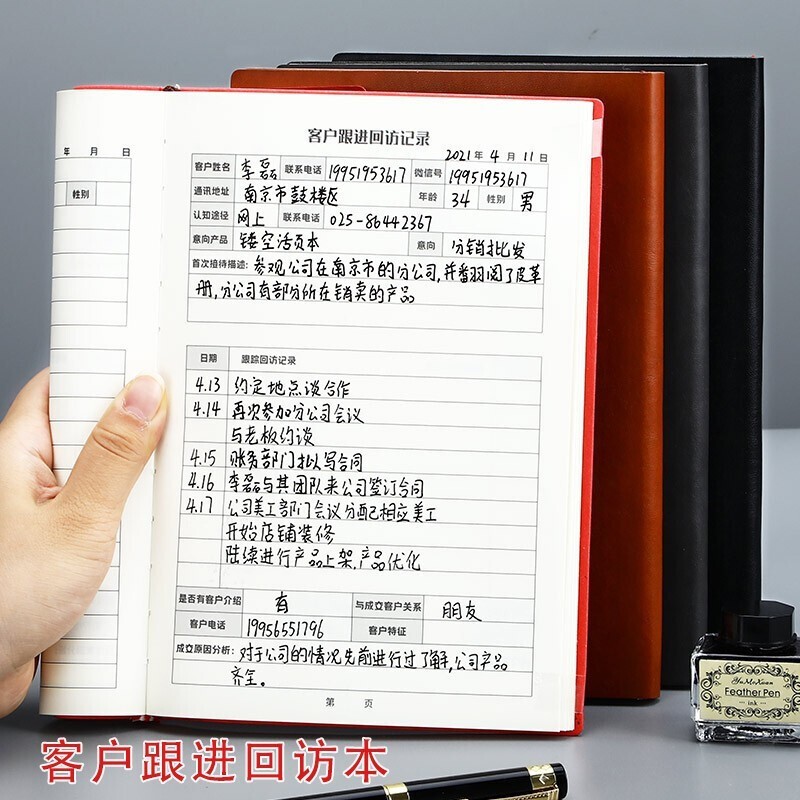 年 月 日
性别
客户跟进回访记录
2021年 4月 11日
客户姓名 李磊 联系电话 19951953617 微信号 19951953617
通讯地址 南京市鼓楼区 年龄 34 性别 男
认知途径 网上 联系电话 025-86442367
意向产品 镂空活页本 意向 分销批发
首次接待描述: 参观公司在南京市的分公司,并翻阅了皮革
册,分公司有部分所在销卖的产品
日期 跟踪回访记录
4.13 约定地点谈合作
4.14 再次参加分公司会议
与老板约谈
4.15 账务部门拟写合同
4.16 李磊与其团队来公司签订合同
4.17 公司美工部门会议分配已相应美工
开始店铺装修
陆续进行产品上架,产品优化
是否有客户介绍 有 与成立客户关系 朋友
客户电话 19956551796 客户特征
成立原因分析: 对于公司的情况先前进行过了解,公司产品
齐全。
第 页
YuMoXuan
Feather Pen
ink
客户跟进回访本